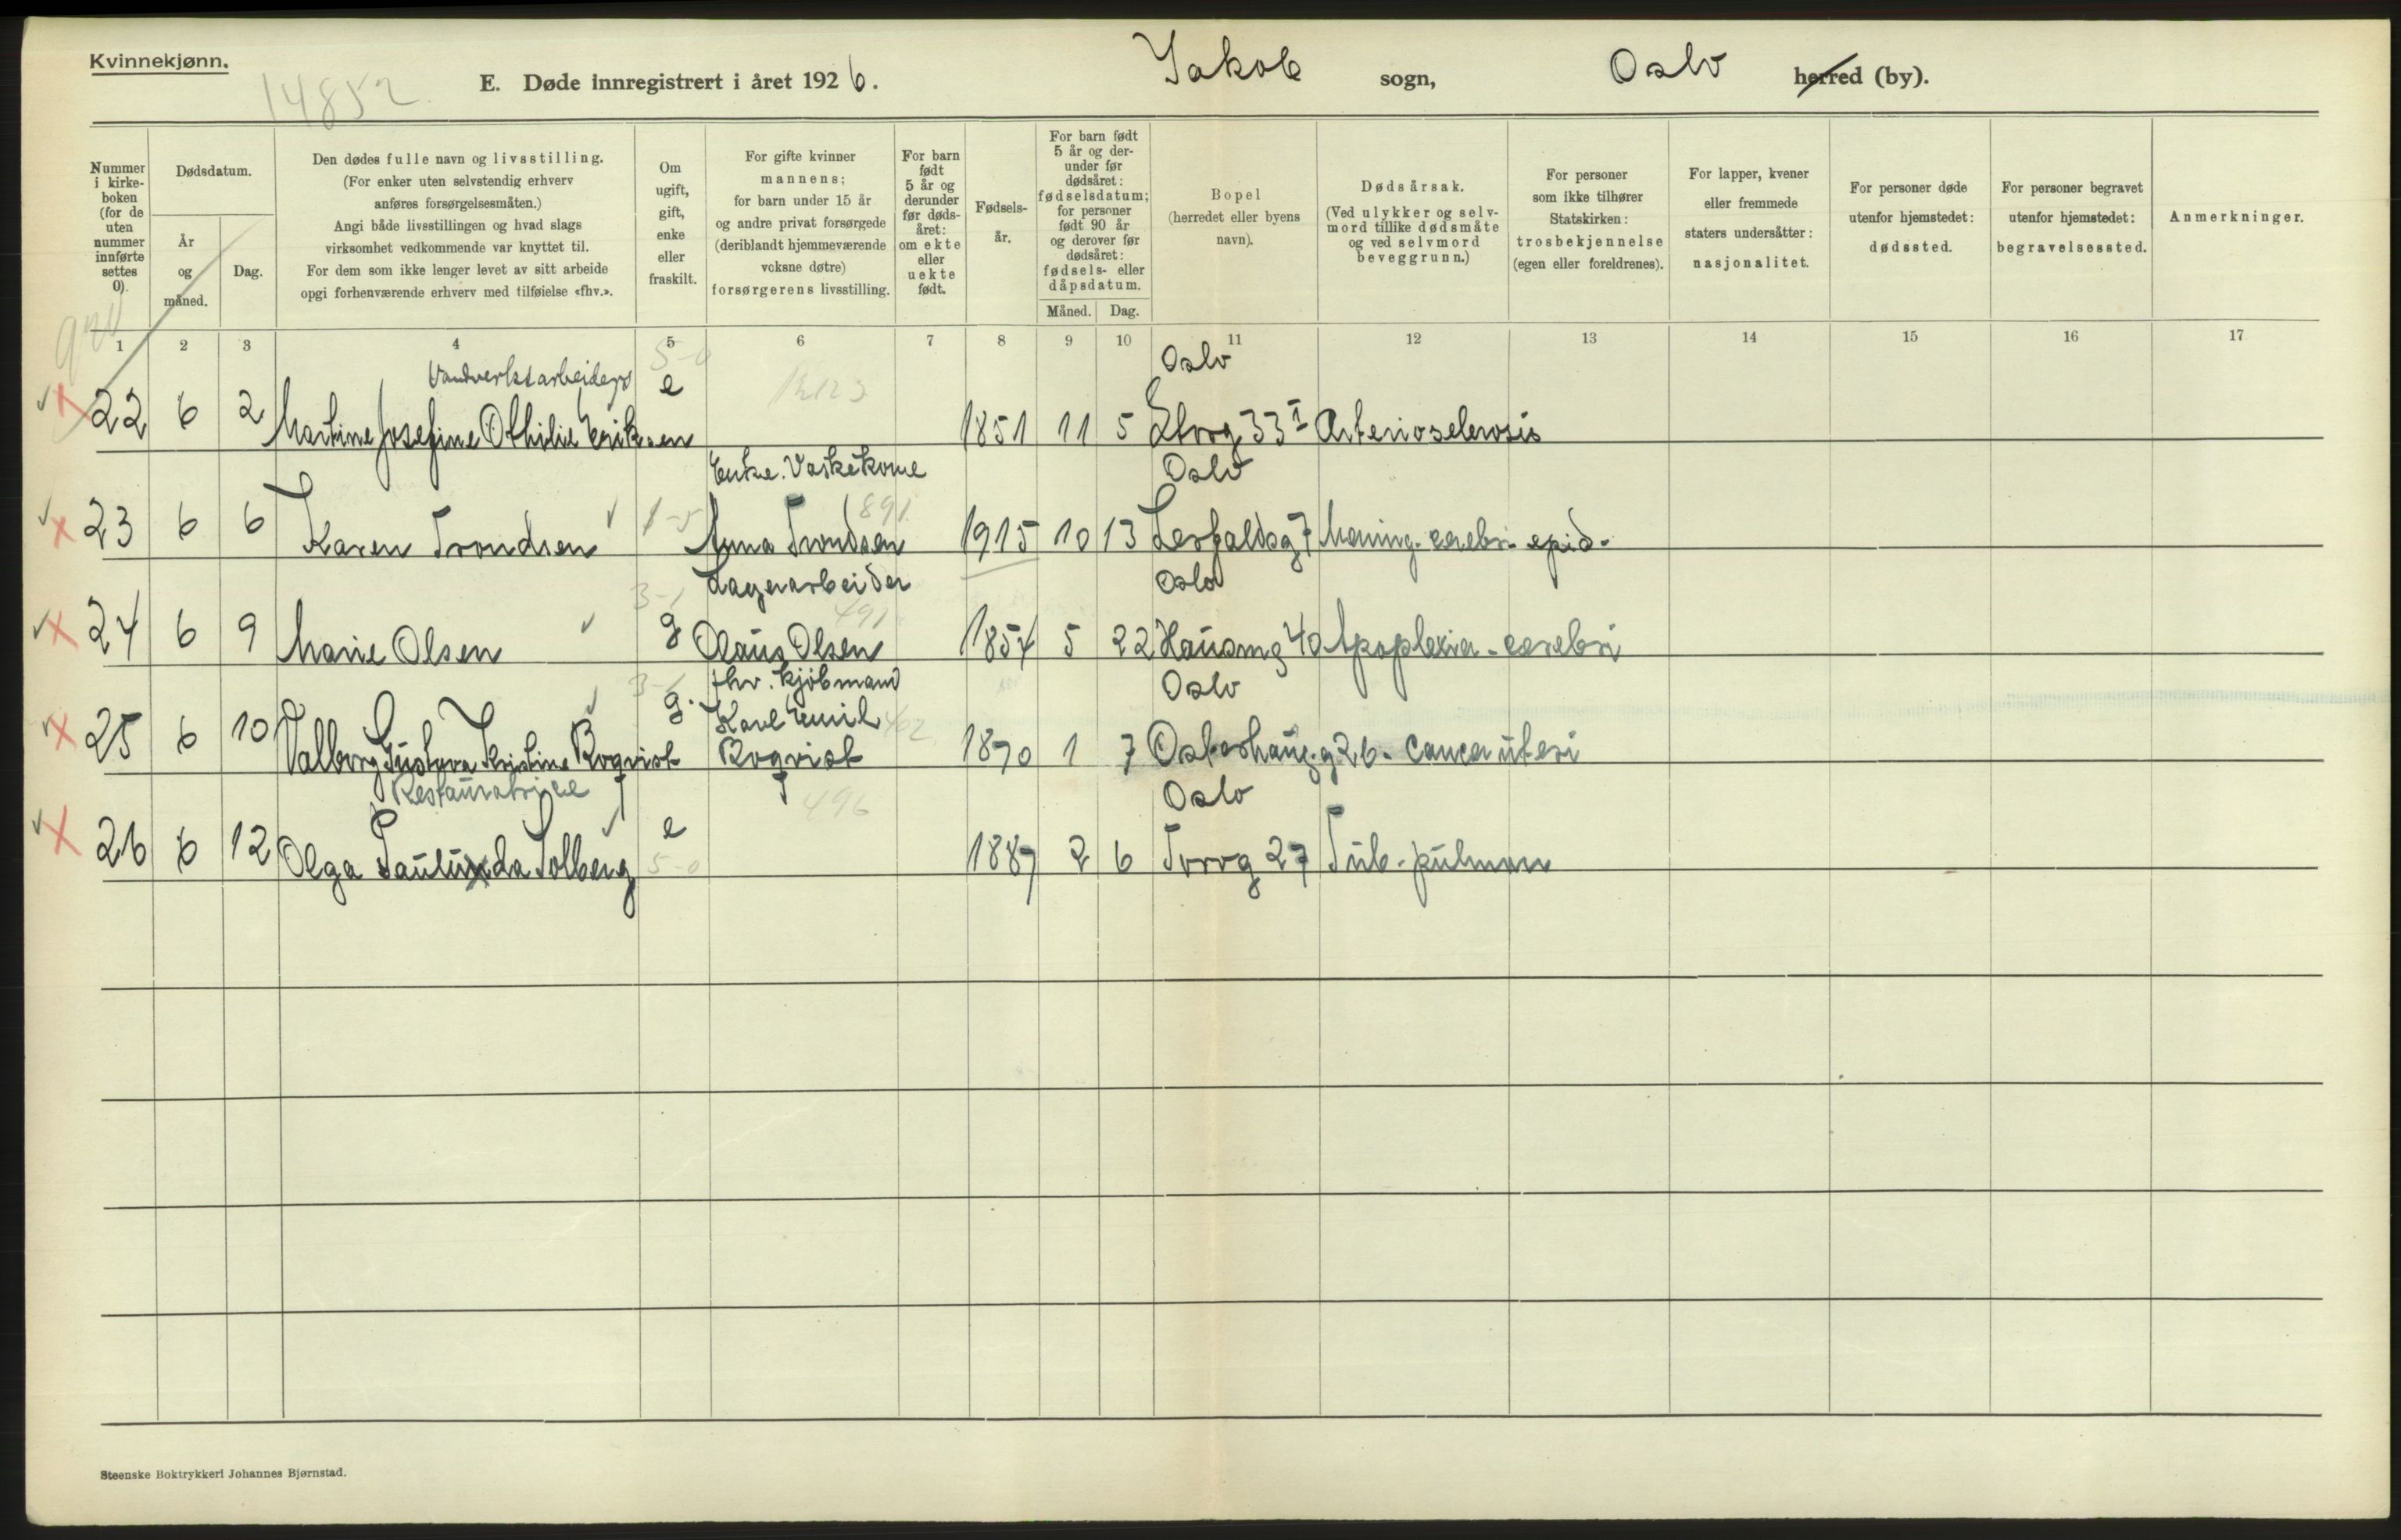 Kvinnekjønn.
14852
E. Døde innregistrert i året 1926. Jakob sogn, Oslo herred (by).
Nummer i kirke-boken (for de uten nummer innførte settes 0).
Dødsdatum.
År og måned.
Dag.
Den dødes fulle navn og livsstilling.
(For enker uten selvstendig erhverv
anføres forsørgelsesmåten.)
Angi både livsstillingen og hvad slags
virksomhet vedkommende var knyttet til.
For dem som ikke lenger levet av sitt arbeide
opgi forhenværende erhverv med tilføielse «fhv.».
Om ugift, gift, enke eller fraskilt.
For gifte kvinner
mannens;
for barn under 15 år
og andre privat forsørgede
(deriblandt hjemmeværende
voksne døtre)
forsørgerens livsstilling.
For barn født 5 år og derunder før døds-året: om ekte eller uekte født.
Fødsels-år.
For barn født 5 år og der-under før dødsåret: fødselsdatum; for personer født 90 år og derover før dødsåret: fødsels- eller dåpsdatum.
Måned. Dag.
Bopel
(herredet eller byens
navn).
Dødsårsak.
(Ved ulykker og selv-
mord tillike dødsmåte
og ved selvmord
beveggrunn.)
For personer
som ikke tilhører
Statskirken:
trosbekjennelse
(egen eller foreldrenes).
For lapper, kvener
eller fremmede
staters undersåtter:
nasjonalitet.
For personer døde
utenfor hjemstedet:
dødssted.
For personer begravet
utenfor hjemstedet:
begravelsessted.
Anmerkninger.
1 2 3 4 5 6 7 8 9 10 11 12 13 14 15 16 17
5-0 Oslo
22 6 2 Martine Josefine Othilie Eriksen e 1851 11 5 Storg 33 I Arteriosclerosis
Enke. Vaskekone Oslo
23 6 6 Karen Trondsen 1-5 Anna Trondsen 891 1915 10 13 7 Mening. cerebr. epid.
Lagerarbeider Oslo
24 6 9 Marie Olsen 3-1 g Olaus Olsen 491 1857 5 22 Hausmg 40 Apoplexia - cerebri
fhv. Kjøbmand Oslo
25 6 10 Valborg Gustava Kristine Roqvist g. Karl Emil Roqvist 1870 1 7 Osterhaug.g 26. Cancer uteri
Restauratrice 496 Oslo
26 6 12 Olga Paulunda Solberg e 5-0 1887 2 6 Torvg 27 Tub. pulmon
Steenske Boktrykkeri Johannes Bjørnstad.